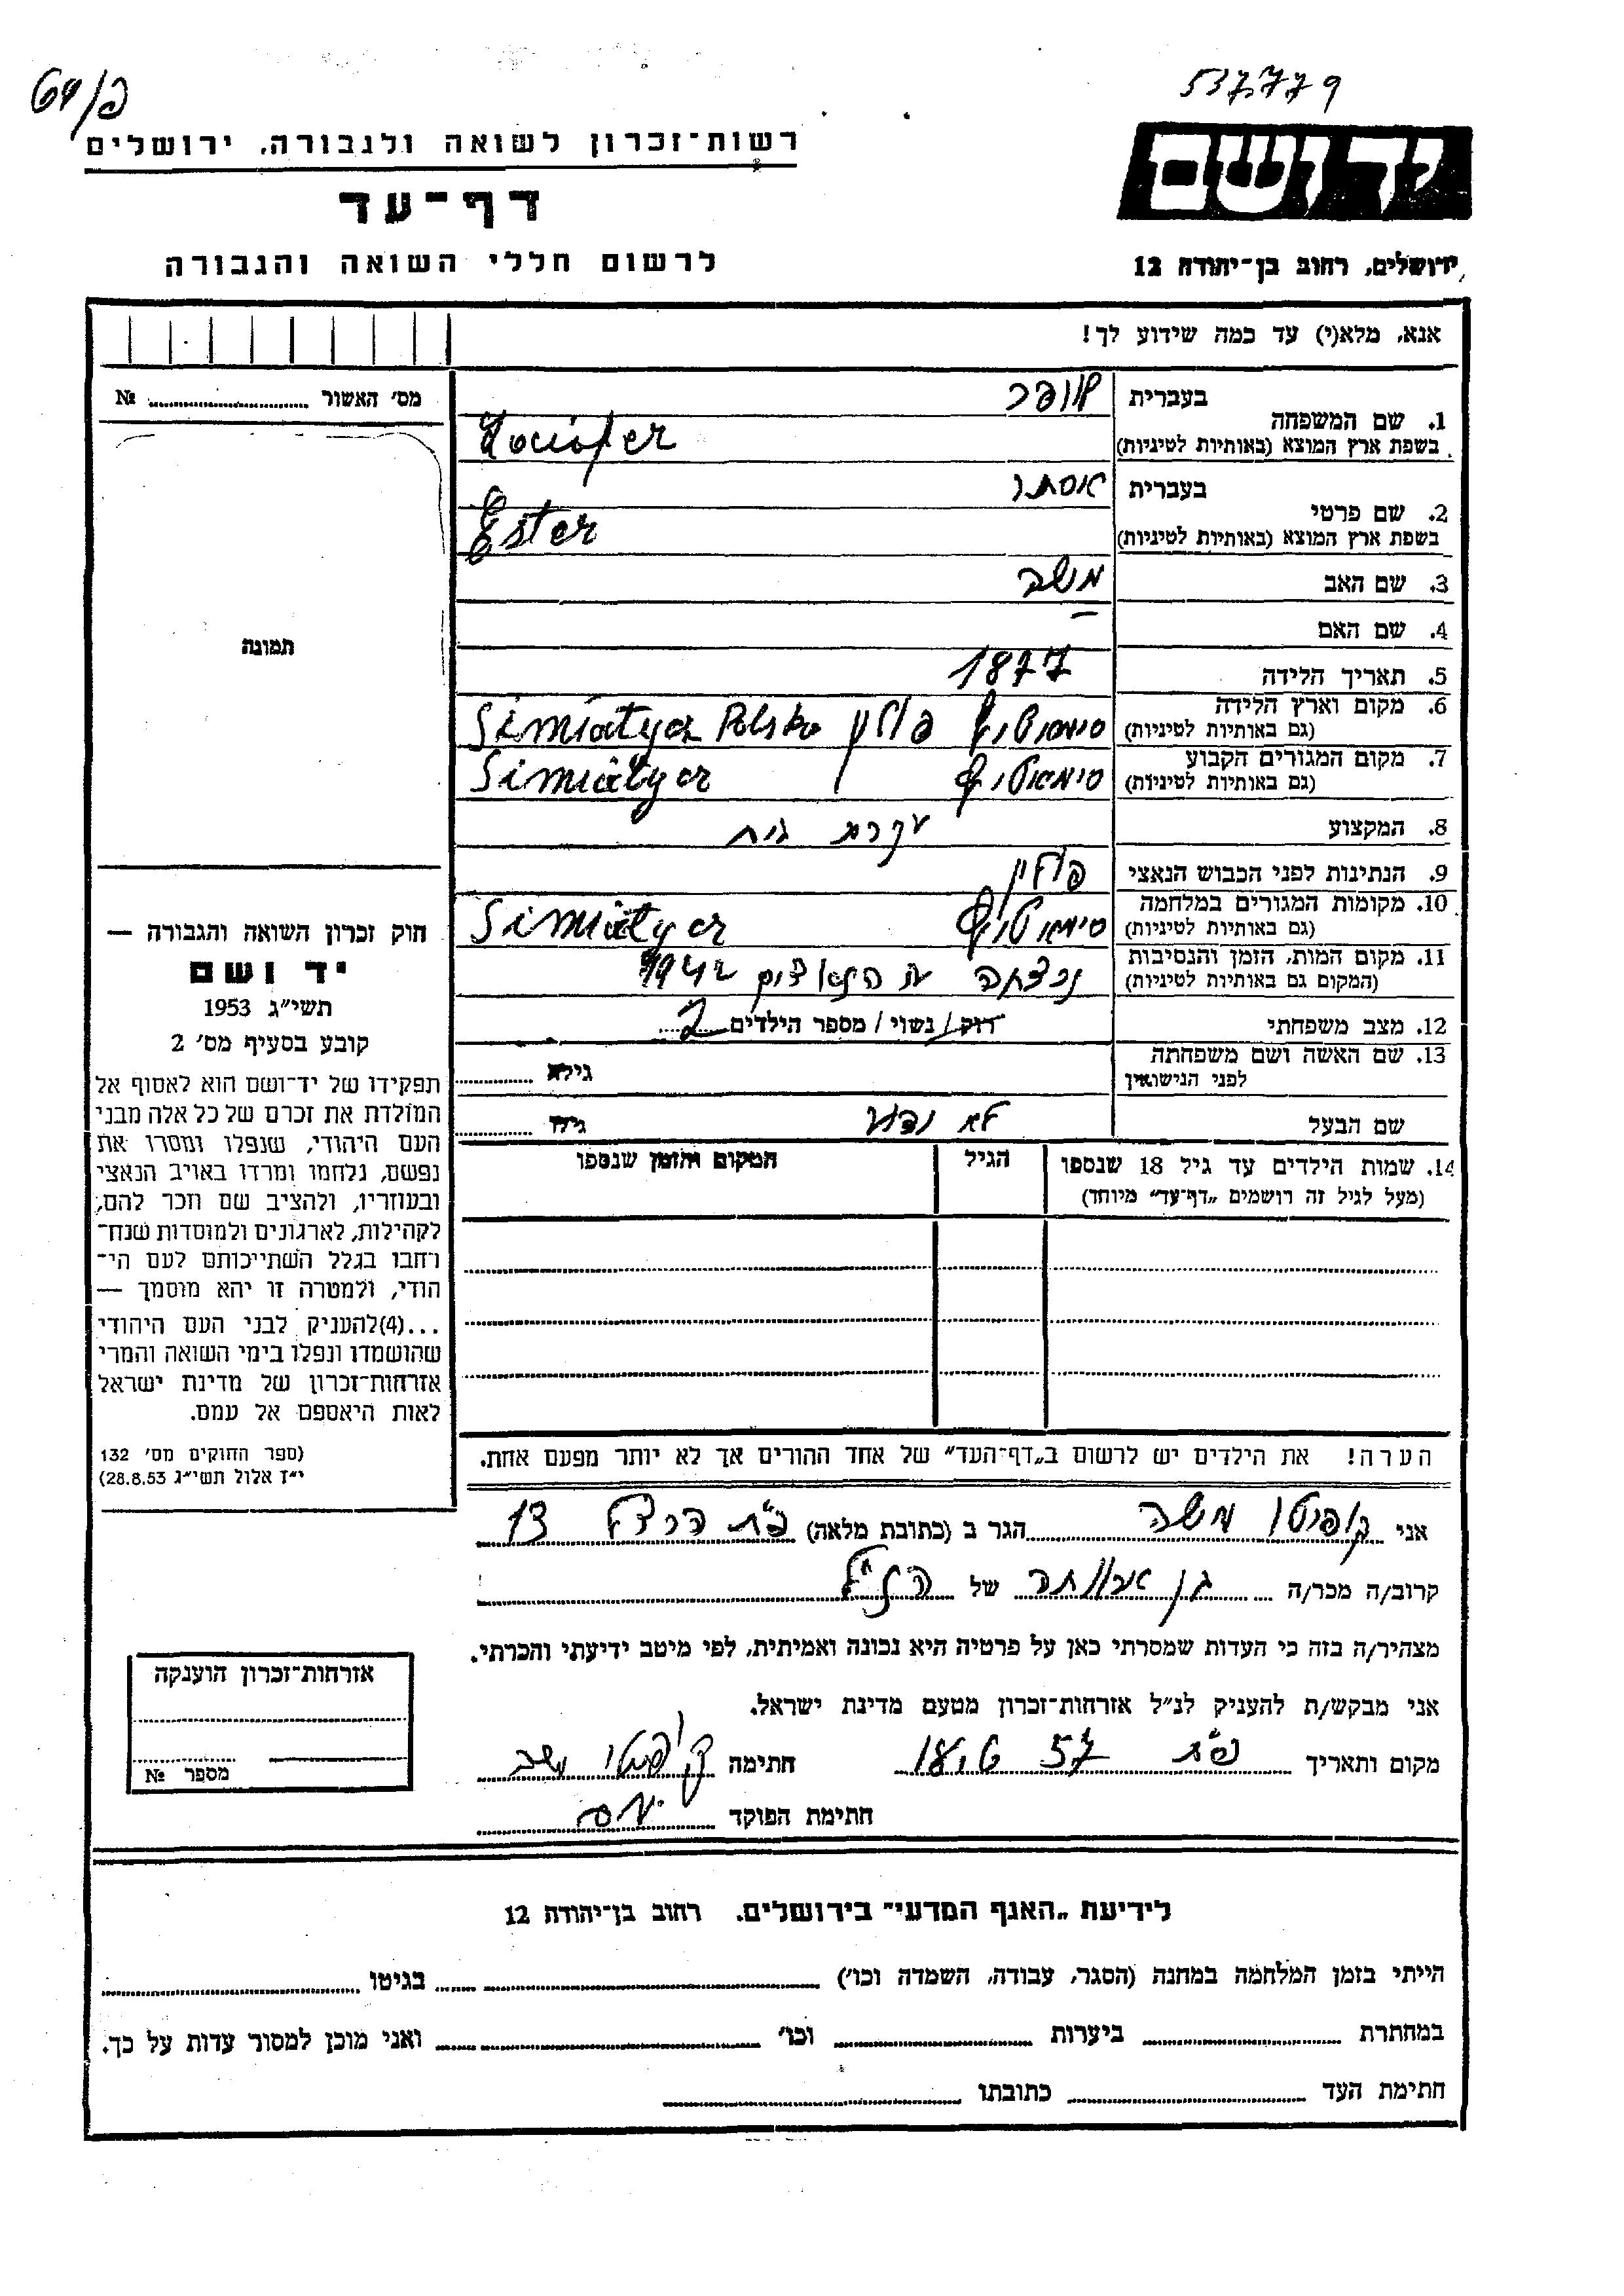 פ/69
537779
רשות־זכרון לשואה ולגבורה, ירושלים
דף־עד
לרשום חללי השואה והגבורה
יד ושם
ירושלים, רחוב בן־יהודה 12
אנא, מלא(י) עד כמה שידוע לך!
מס׳ האשור № 
תמונה
1. שם המשפחה
בעברית
בשפת ארץ המוצא (באותיות לטיניות)
2. שם פרטי
בעברית אסתר
בשפת ארץ המוצא (באותיות לטיניות) Ester
3. שם האב משה
4. שם האם —
5. תאריך הלידה 1877
6. מקום וארץ הלידה
(גם באותיות לטיניות) פולין Simiatycz Polska
7. מקום המגורים הקבוע
(גם באותיות לטיניות) סימאטיץ Simiatycz
8. המקצוע עקרת בית
9. הנתינות לפני הכבוש הנאצי פולין
10. מקומות המגורים במלחמה
(גם באותיות לטיניות) סימאטיץ Simiatycz
11. מקום המות, הזמן והנסיבות
(המקום גם באותיות לטיניות) 1942
12. מצב משפחתי רוק/נשוי/מספר הילדים 2
13. שם האשה ושם משפחתה
לפני הנישואין גילה
שם הבעל לא ידוע גילו
14. שמות הילדים עד גיל 18 שנספו הגיל המקום והזמן שנספו
(מעל לגיל זה רושמים „דף־עד״ מיוחד)
הערה! את הילדים יש לרשום ב„דף־העד״ של אחד ההורים אך לא יותר מפעם אחת.
חוק זכרון השואה והגבורה —
יד ושם
תשי״ג 1953
קובע בסעיף מס׳ 2
תפקידו של יד־ושם הוא לאסוף אל
המולדת את זכרם של כל אלה מבני
העם היהודי, שנפלו ומסרו את
נפשם, נלחמו ומרדו באויב הנאצי
ובעוזריו, ולהציב שם וזכר להם,
לקהילות, לארגונים ולמוסדות שנח־
רחבו בגלל השתייכותם לעם הי־
הודי, ולמטרה זו יהא מוסמך —
...(4)להעניק לבני העם היהודי
שהושמדו ונפלו בימי השואה והמרי
אזרחות־זכרון של מדינת ישראל
לאות היאספם אל עמם.
(ספר החוקים מס׳ 132
י״ז אלול תשי״ג 28.8.53)
אני משה הגר ב (כתובת מלאה) פ״ת הרצל 13
קרוב/ה מכר/ה בן אחותה של הנ״ל
מצהיר/ה בזה כי העדות שמסרתי כאן על פרטיה היא נכונה ואמיתית, לפי מיטב ידיעתי והכרתי.
אני מבקש/ת להעניק לנ״ל אזרחות־זכרון מטעם מדינת ישראל.
מקום ותאריך פ״ת חתימה
חתימת הפוקד
אזרחות־זכרון הוענקה
מספר №
לידיעת „האגף המדעי״ בירושלים, רחוב בן־יהודה 12
הייתי בזמן המלחמה במחנה (הסגר, עבודה, השמדה וכו׳) בגיטו
במחתרת ביערות וכו׳ ואני מוכן למסור עדות על כך.
חתימת העד כתובתו